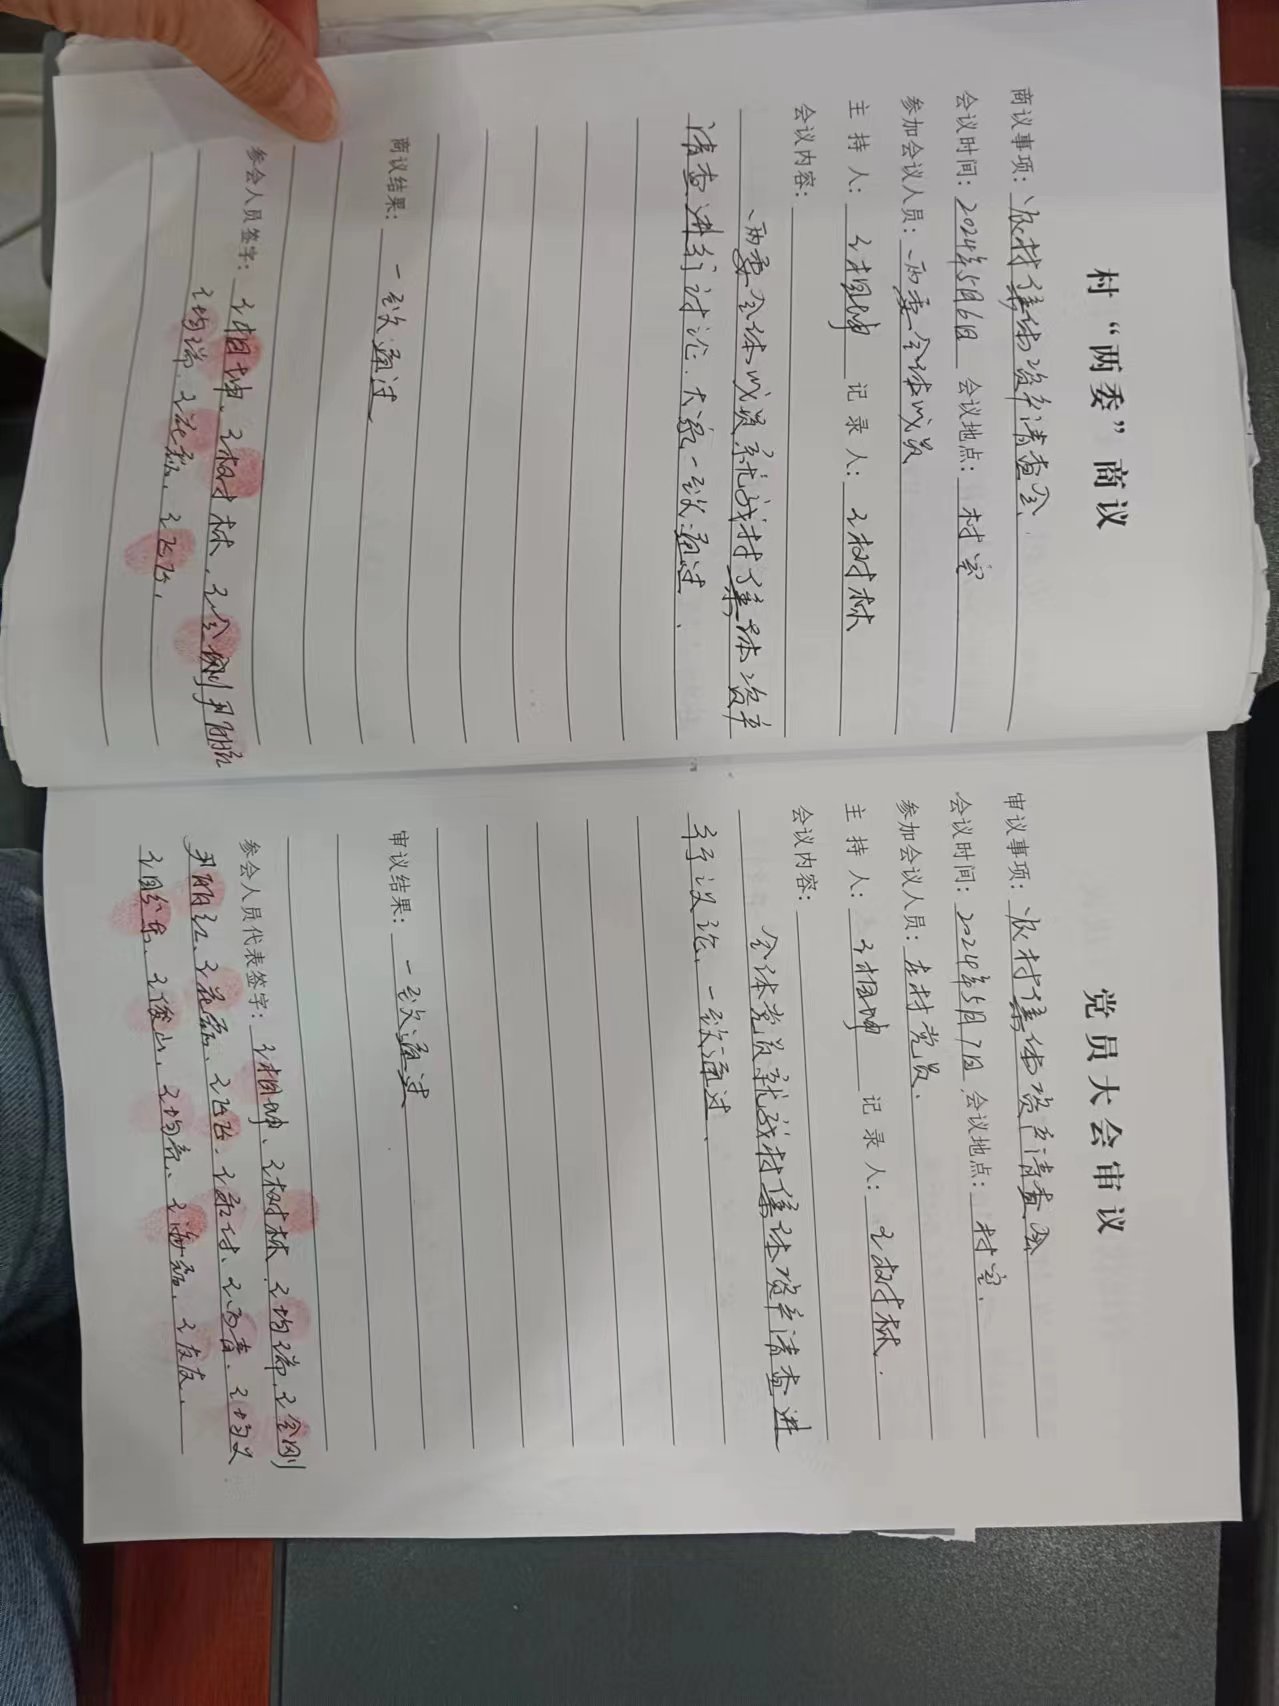 村“两委”商议
商议事项：农村集体资产清查会
会议时间：2024年5月6日 会议地点：村室
参加会议人员：两委全体成员
主持人：王相坤 记录人：王树林
会议内容：
两委全体成员就我村集体资产
清查进行讨论.大家一致通过.
商议结果：一致通过
参会人员签字：王相坤、王树林、王金刚
王均瑞、王飞
党员大会审议
审议事项：农村集体资产清查会
会议时间：2024年5月7日 会议地点：村室.
参加会议人员：在村党员.
主持人：王相坤 记录人：王树林.
会议内容：
全体党员就我村集体资产清查进
行议论、一致通过.
审议结果：一致通过
参会人员代表签字：王相坤、王树林、王均瑞、王金刚
王飞
王俊山、王均亮、王海磊、王友友.